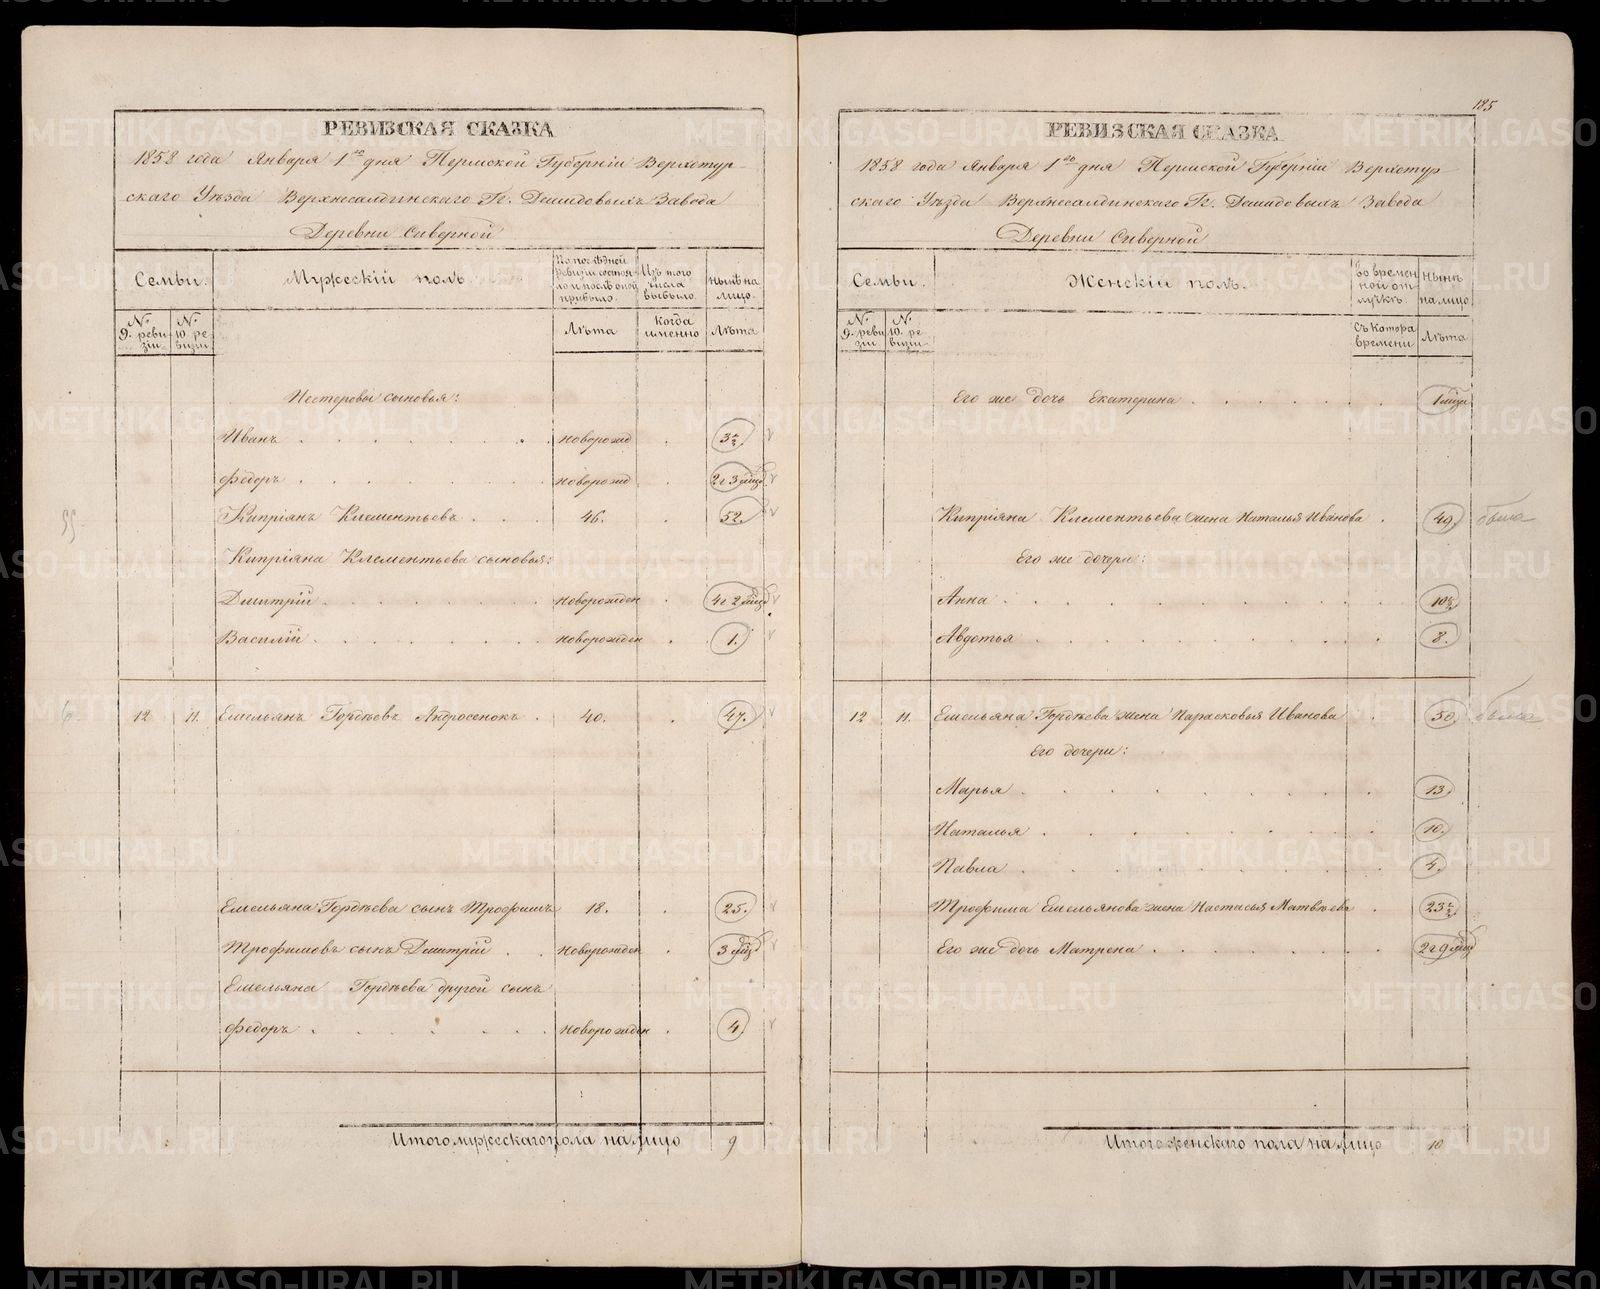 РЕВИЗСКАЯ СКАЗКА
1858 года Января 1го дня Пермской Губерніи Верхотур-
скаго Уѣзда Верхнесалдинскаго Гг. Демидовыхъ Завода
Деревни Сиверной
Семьи.
Мужескій полъ
По послѣдней ревизіи состояло и послѣ оной прибыло.
Изъ того числа выбыло.
Нынѣ на лицо.
№ 9. ревизіи
№ 10. ревизіи
Лѣта
Когда именно
Лѣта
Нестеровы сыновья:
Иванъ новорожд 3½
Федоръ новорожд 2 г 3 мѣсц
55
Кипріянъ Клементьевъ 46. 52.
Кипріяна Клементьева сыновья:
Дмитрій новорожден 4 г 2 мѣсц
Василій новорожден 1.
6 12 11. Емельянъ Гордѣевъ Андросенокъ 40. 47.
Емельяна Гордѣева сынъ Трофимъ 18. 25.
Трофимовъ сынъ Дмитрій новорожден 3 мѣсц
Емельяна Гордѣева другой сынъ
Федоръ новорожден 4
Итого мужескаго пола на лицо 9
185
РЕВИЗСКАЯ СКАЗКА
1858 года Января 1го дня Пермской Губерніи Верхотур
скаго Уѣзда Верхнесалдинскаго Гг. Демидовыхъ Завода
Деревни Сиверной
Семьи.
Женскій полъ.
Во временной отлучкѣ
Нынѣ на лицо
№ 9. ревизіи
№ 10. ревизіи
Съ котора времени
Лѣта
Его же дочь Екатерина 1 мѣсц
Кипріяна Клементьева жена Наталья Иванова 49.
Его же дочери:
Анна 10½
Авдотья 8.
12 11. Емельяна Гордѣева жена Парасковья Иванова 50.
Его дочери:
Марья 13.
Наталья 10.
Павла 4.
Трофима Емельянова жена Настасья Матвѣева 23½
Его же дочь Матрена 2 г 9 мѣсц
Итого женскаго пола на лицо 10
METRIKI.GASO-URAL.RU